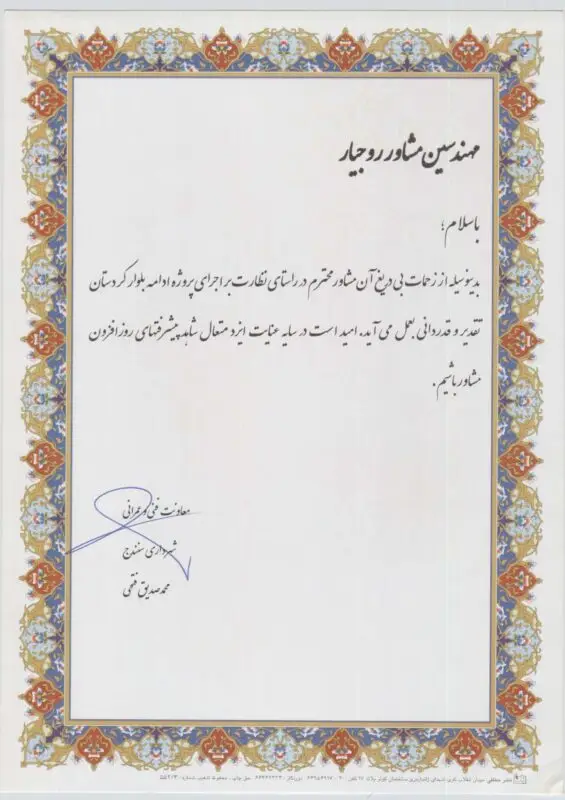 مهندسین مشاور روجیار
باسلام؛
بدینوسیله از زحمات بی دریغ آن مشاور محترم در راستای نظارت بر اجرای پروژه ادامه بلوار کردستان
تقدیر و قدردانی بعمل می آید. امید است در سایه عنایت ایزد متعال شاهد پیشرفتهای روز افزون
مشاور باشیم.
معاونت فنی و عمرانی
شهرداری سنندج
محمد صدیق فتحی